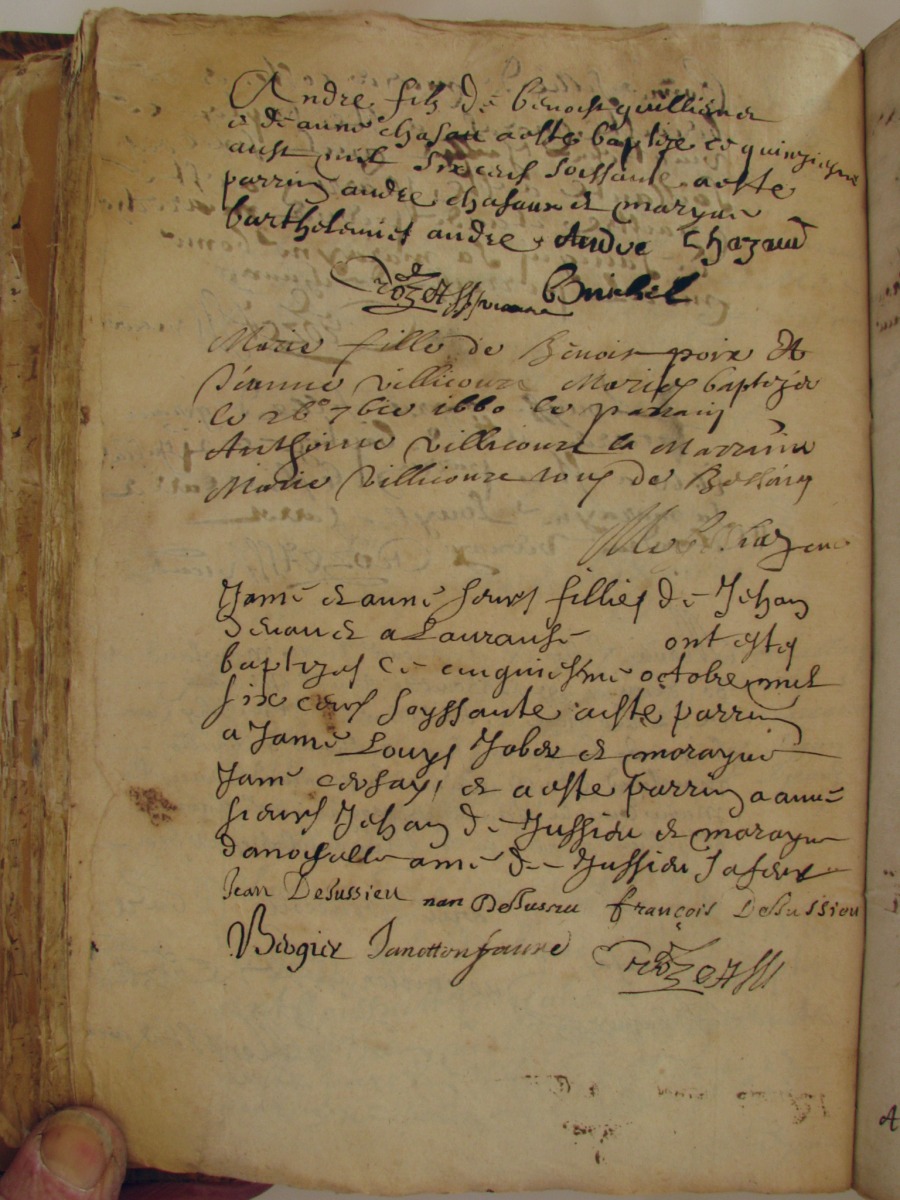 Andre filz de benoist guilliand
& de anne chasau a esté baptize ce quinziesme
aust mil six cens soissante a esté
parrin andre chasaux et maryne
barthelemie andre Andre Chazaud
Michel
Marie fille de Benoist poix Et
Jeanne Villicourt Mariés baptizée
le 26e 7bre 1660 le parrain
Anthoine Villicourt la Marrine
Marie Villicourt tous de
Jame & anne seurs fillies de Jehan
& a Lauranse ont estes
baptizes ce cinquiesme octobre mil
six cens soyssante a esté parrin
a Jame Louys Jaber et marayne
Jame et a esté parrin a anne
Jehan de Jussieu et marayne
damoiselle ame de Jussieu sa seur
Jean DeJussieu DeJussieu françois DeJussieu
Bergier Janetton faure